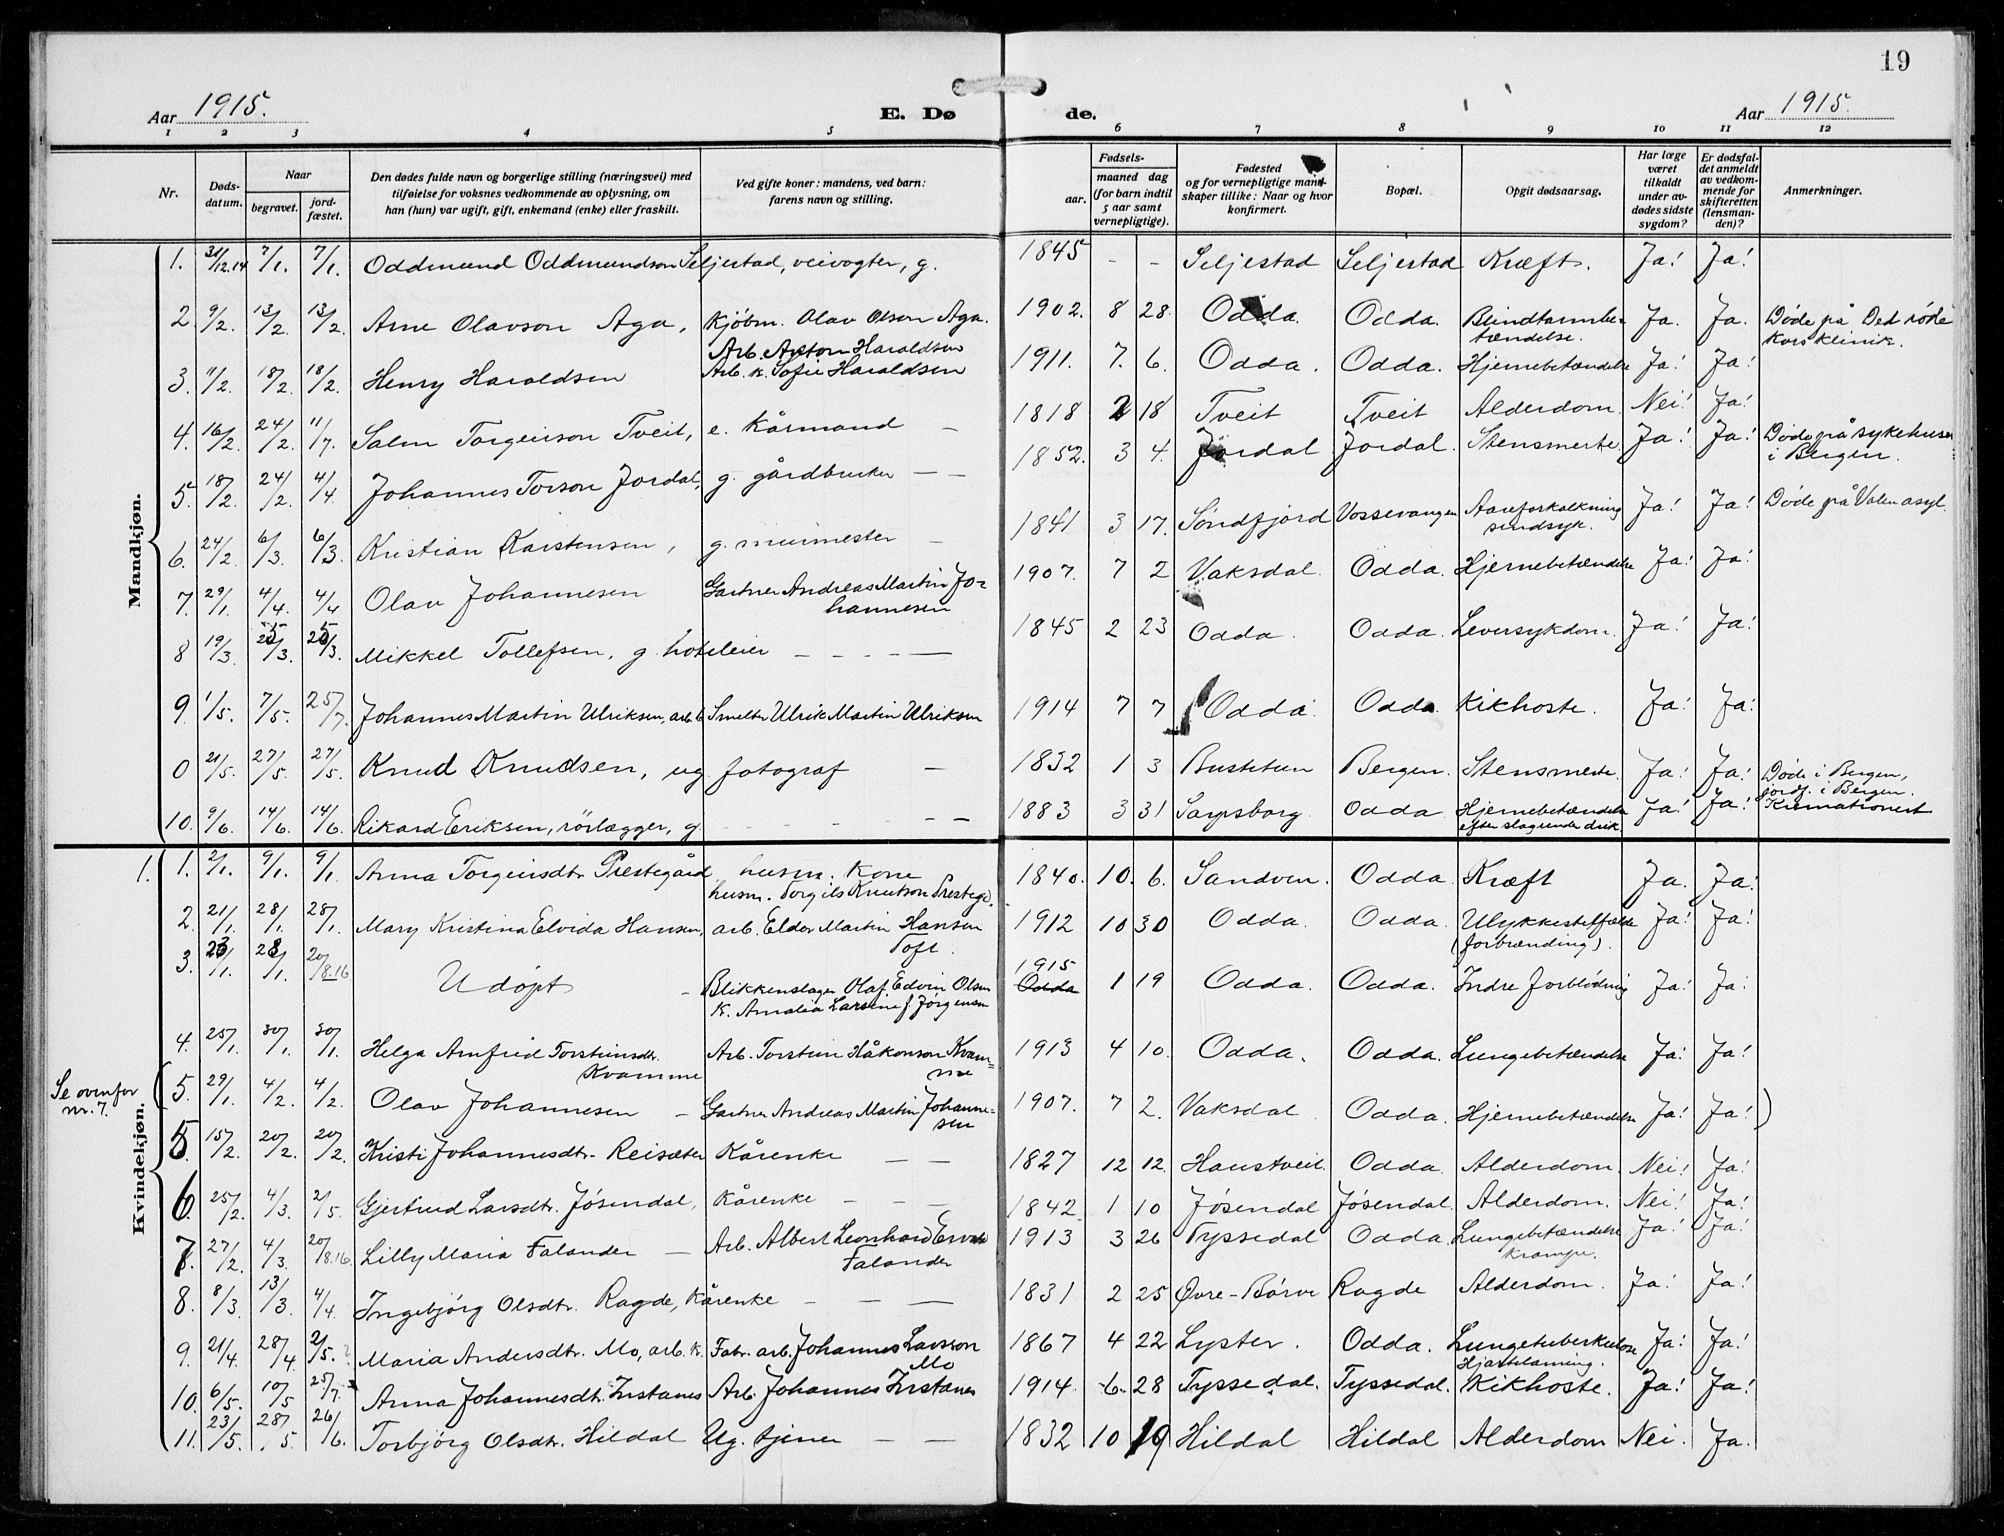 19
Aar 1915. E. Døde. Aar 1915.
1 2 3 4 5 6 7 8 9 10 11 12
Nr. Døds-datum. Naar begravet. jord-fæstet. Den dødes fulde navn og borgerlige stilling (næringsvei) med tilføielse for voksnes vedkommende av oplysning, om han (hun) var ugift, gift, enkemand (enke) eller fraskilt. Ved gifte koner: mandens, ved barn: farens navn og stilling. Fødsels- aar. maaned dag (for barn indtil 5 aar samt vernepligtige). Fødested og for vernepligtige mandskaper tillike: Naar og hvor konfirmert. Bopæl. Opgit dødsaarsag. Har læge været tilkaldt under avdødes sidste sygdom? Er dødsfaldet anmeldt av vedkommende for skifteretten (lensmanden)? Anmerkninger.
Mandkjøn.
1. 31/12.14 7/1. 7/1. Oddmund Oddmundson Seljestad, veivogter, g. 1845 - - Seljestad Seljestad Kræft. Ja! Ja!
2. 9/2. 13/2 13/2. Arne Olavson Aga, Kjøbm. Olav Olson Aga. 1902. 8 28. Odda. Odda. Blindtarmbetændelse. Ja. Ja. Døde på Det røde Kors klinik.
3. 11/2. 18/2 18/2. Henry Haraldsen Arb. Anton Haraldsen Arb. k. Sofie Haraldsen 1911. 7. 6. Odda. Odda. Hjernebetændelse Ja! Ja!
4. 16/2. 24/2. 11/7. Salm Torgeirson Tveit, e. Kårmand - 1818 2 18 Tveit Tveit Alderdom. Nei! Ja!
5. 18/2 24/2. 4/4. Johannes Torson Jordal, g. gårdbruker - - 1852. 3 4. Jordal Jordal. Stensmerte. Ja! Ja! Døde på sykehuset i Bergen.
6. 24/2. 6/3. 6/3. Kristian Karstensen, g. murmester - 1841 3 17. Søndfjord Vossevangen Aareforkalkning sindsyk. Ja! Ja! Døde på Valen asyl.
7. 29/1. 4/4. 4/4 Olav Johannesen Gartner Andreas Martin Johannesen 1907. 7 2 Vaksdal. Odda. Hjernebetændelse Ja! Ja!
8 19/3. 25/3. 25/3. Mikkel Tollefsen, g. hoteleier - - - - 1845 2 23 Odda. Odda. Leversykdom. Ja! Ja!
9. 1/5. 7/5. 25/7. Johannes Martin Ulriksen, arb. b Smelter Ulrik Martin Ulriksen 1914 7 7 Odda. Odda Kikhoste. Ja! Ja!
0 21/5. 27/5. 27/5. Knud Knudsen, ug. fotograf - 1832 1 3 Bustetun Bergen. Stensmerte. Ja! Ja! Døde i Bergen, jordf. i Bergen.
10. 9/6. 14/6. 14/6. Rikard Eriksen, rørlægger, g. - - - - 1883 3 31 Sarpsborg Odda. Hjernebetændelse efter slagrende drik. Ja! Ja! Krematioinert
Kvindekjøn.
1. 1. 2/1. 9/1. 9/1. Anna Torgeirsdtr. Prestegård husm. Kone husm. Torgils Knutson Prestegd. 1840. 10. 6. Sandven. Odda. Kræft Ja. Ja.
2. 21/1. 28/1. 28/1. Mary Kristina Elvida Hansen, arb. Elder Martin Hansen Toft. 1912 10 30 Odda. Odda. Ulykkestilfælde (forbrænding). Ja! Ja!
3. 23/1. 28/1. 20/8.16 Udøpt - Blikkenslager Olaf Edvin Olsen K. Amalia Larsine f. Jørgensen 1915 Odda 1 19 Odda. Odda. Indre forblødning Ja! Ja!
4. 25/1. 30/1. 30/1. Helga Arnfrid Torsteinsdtr. Kvamme Arb. Torstein Håkonson Kvamme 1913 4 10. Odda. Odda. Lungebetændelse Ja! Ja!
Se ovenfor nr. 7. (5. 29/1. 4/2. 4/2. Olav Johannesen - Gartner Andreas Martin Johannesen 1907. 7 2. Vaksdal. Odda. Hjernebetændelse Ja! Ja!)
5. 15/2. 20/2. 20/2. Kristi Johannesdtr. Reisæter Kårenke - - 1827 12 12. Haustveit. Odda. Alderdom. Nei! Ja!
6. 25/2. 4/3. 2/5. Gjertrud Larsdtr. Jøsendal, Kårenke - - - 1842. 1 10 Jøsendal Jøsendal. Alderdom. Nei! Ja!
7. 27/2. 4/3. 20/8.16. Lilly Maria Falander - Arb. Albert Leonhard Falander 1913 3 26 Tyssedal Odda. Lungebetændelse Krampe. Ja! Ja!
8. 8/3. 13/3. 4/4. Ingebjørg Olsdtr. Ragde, Kårenke - - - 1831 2 25 Øvre-Børve Ragde Alderdom. Ja! Ja!
9. 21/4. 28/4 2/5. Maria Andersdtr. Mo, arb. k. Fabr. arb. Johannes Larsson Mo 1867 4 22 Lyster. Odda. Lungetuberkulose Hjertelamning. Ja! Ja!
10. 6/5. 10/5 25/7. Anna Johannesdtr. Instanes Arb. Johannes Instanes 1914. 6. 28 Tyssedal. Tyssedal. Kikhoste. Ja! Ja!
11. 23/5. 28/5. 26/6. Torbjørg Olsdtr. Hildal Ug. tjener - - 1832 10 19 Hildal Hildal Alderdom Nei. Ja.